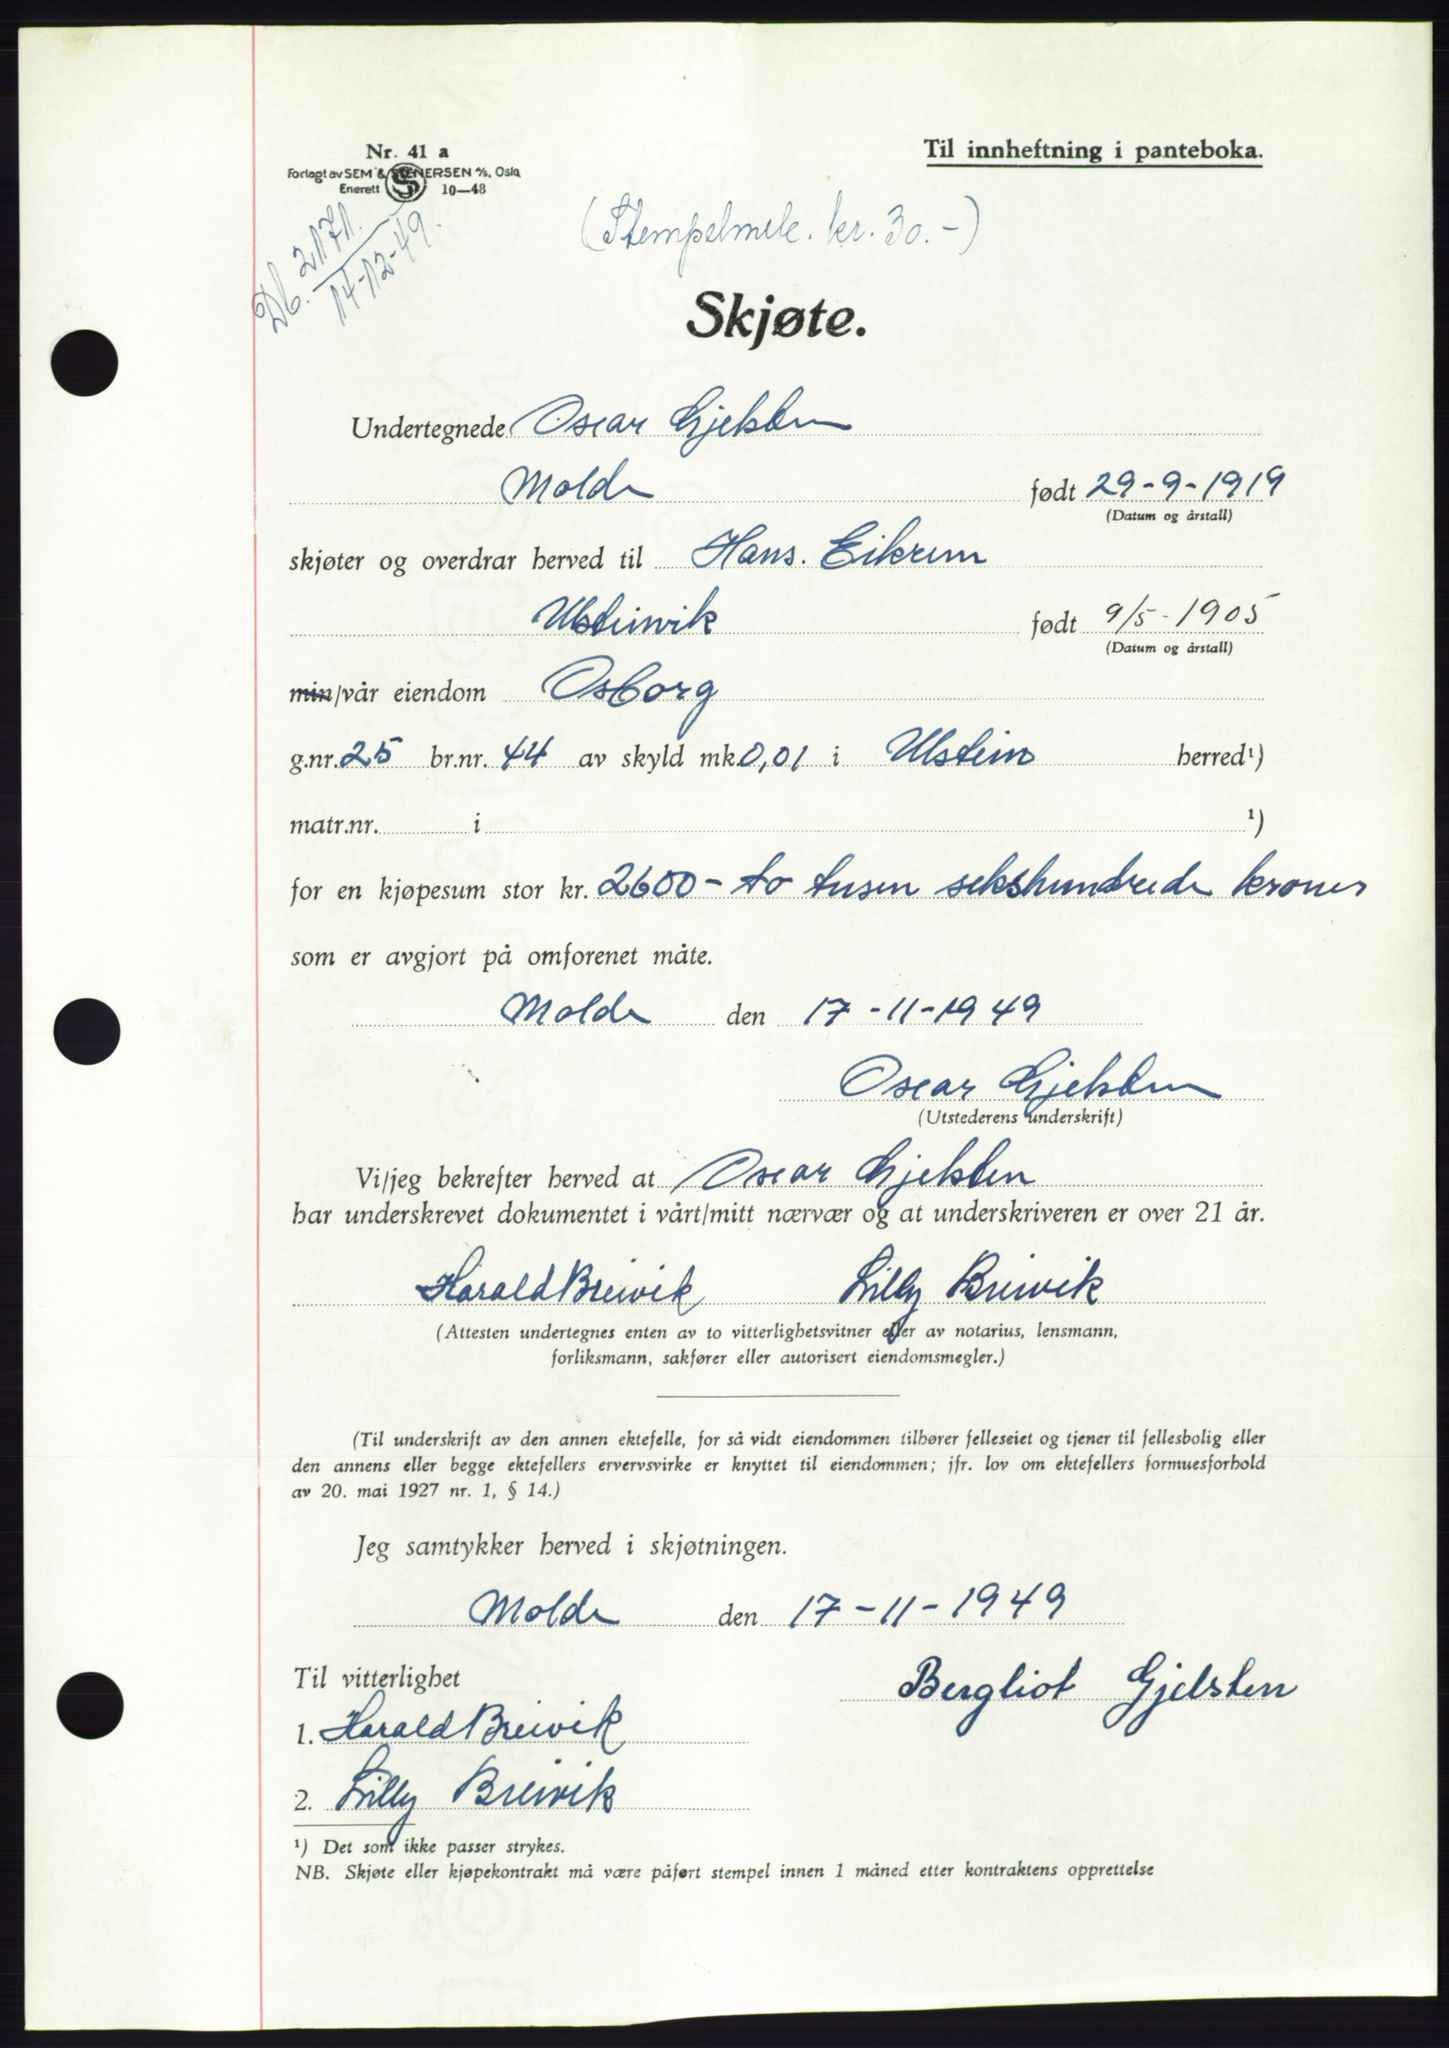 Nr. 41 a
Til innheftning i panteboka.
Forlagt av SEM & STENERSEN A/S, Oslo
Enerett S 10—48
Db. 2171.
14-12-49.
(Stempelmrk. kr. 30.-)
Skjøte.
Undertegnede Oscar Gjelsten
Molde født 29-9-1919
(Datum og årstall)
skjøter og overdrar herved til Hans. Eikrem
Ulsteinvik født 9/5-1905
(Datum og årstall)
min/vår eiendom Osborg
g.nr. 25 br.nr. 44 av skyld mk. 0,01 i Ulstein herred¹)
matr.nr. i ¹)
for en kjøpesum stor kr. 2600- to tusen sekshundrede kroner
som er avgjort på omforenet måte.
Molde den 17-11-1949
Oscar Gjelsten
(Utstederens underskrift)
Vi/jeg bekrefter herved at Oscar Gjelsten
har underskrevet dokumentet i vårt/mitt nærvær og at underskriveren er over 21 år.
Harald Breivik Lilly Breivik
(Attesten undertegnes enten av to vitterlighetsvitner eller av notarius, lensmann,
forliksmann, sakfører eller autorisert eiendomsmegler.)
(Til underskrift av den annen ektefelle, for så vidt eiendommen tilhører felleseiet og tjener til fellesbolig eller
den annens eller begge ektefellers ervervsvirke er knyttet til eiendommen; jfr. lov om ektefellers formuesforhold
av 20. mai 1927 nr. 1, § 14.)
Jeg samtykker herved i skjøtningen.
Molde den 17-11-1949
Til vitterlighet
Bergliot Gjelsten
1. Harald Breivik
2. Lilly Breivik
¹) Det som ikke passer strykes.
NB. Skjøte eller kjøpekontrakt må være påført stempel innen 1 måned etter kontraktens opprettelse